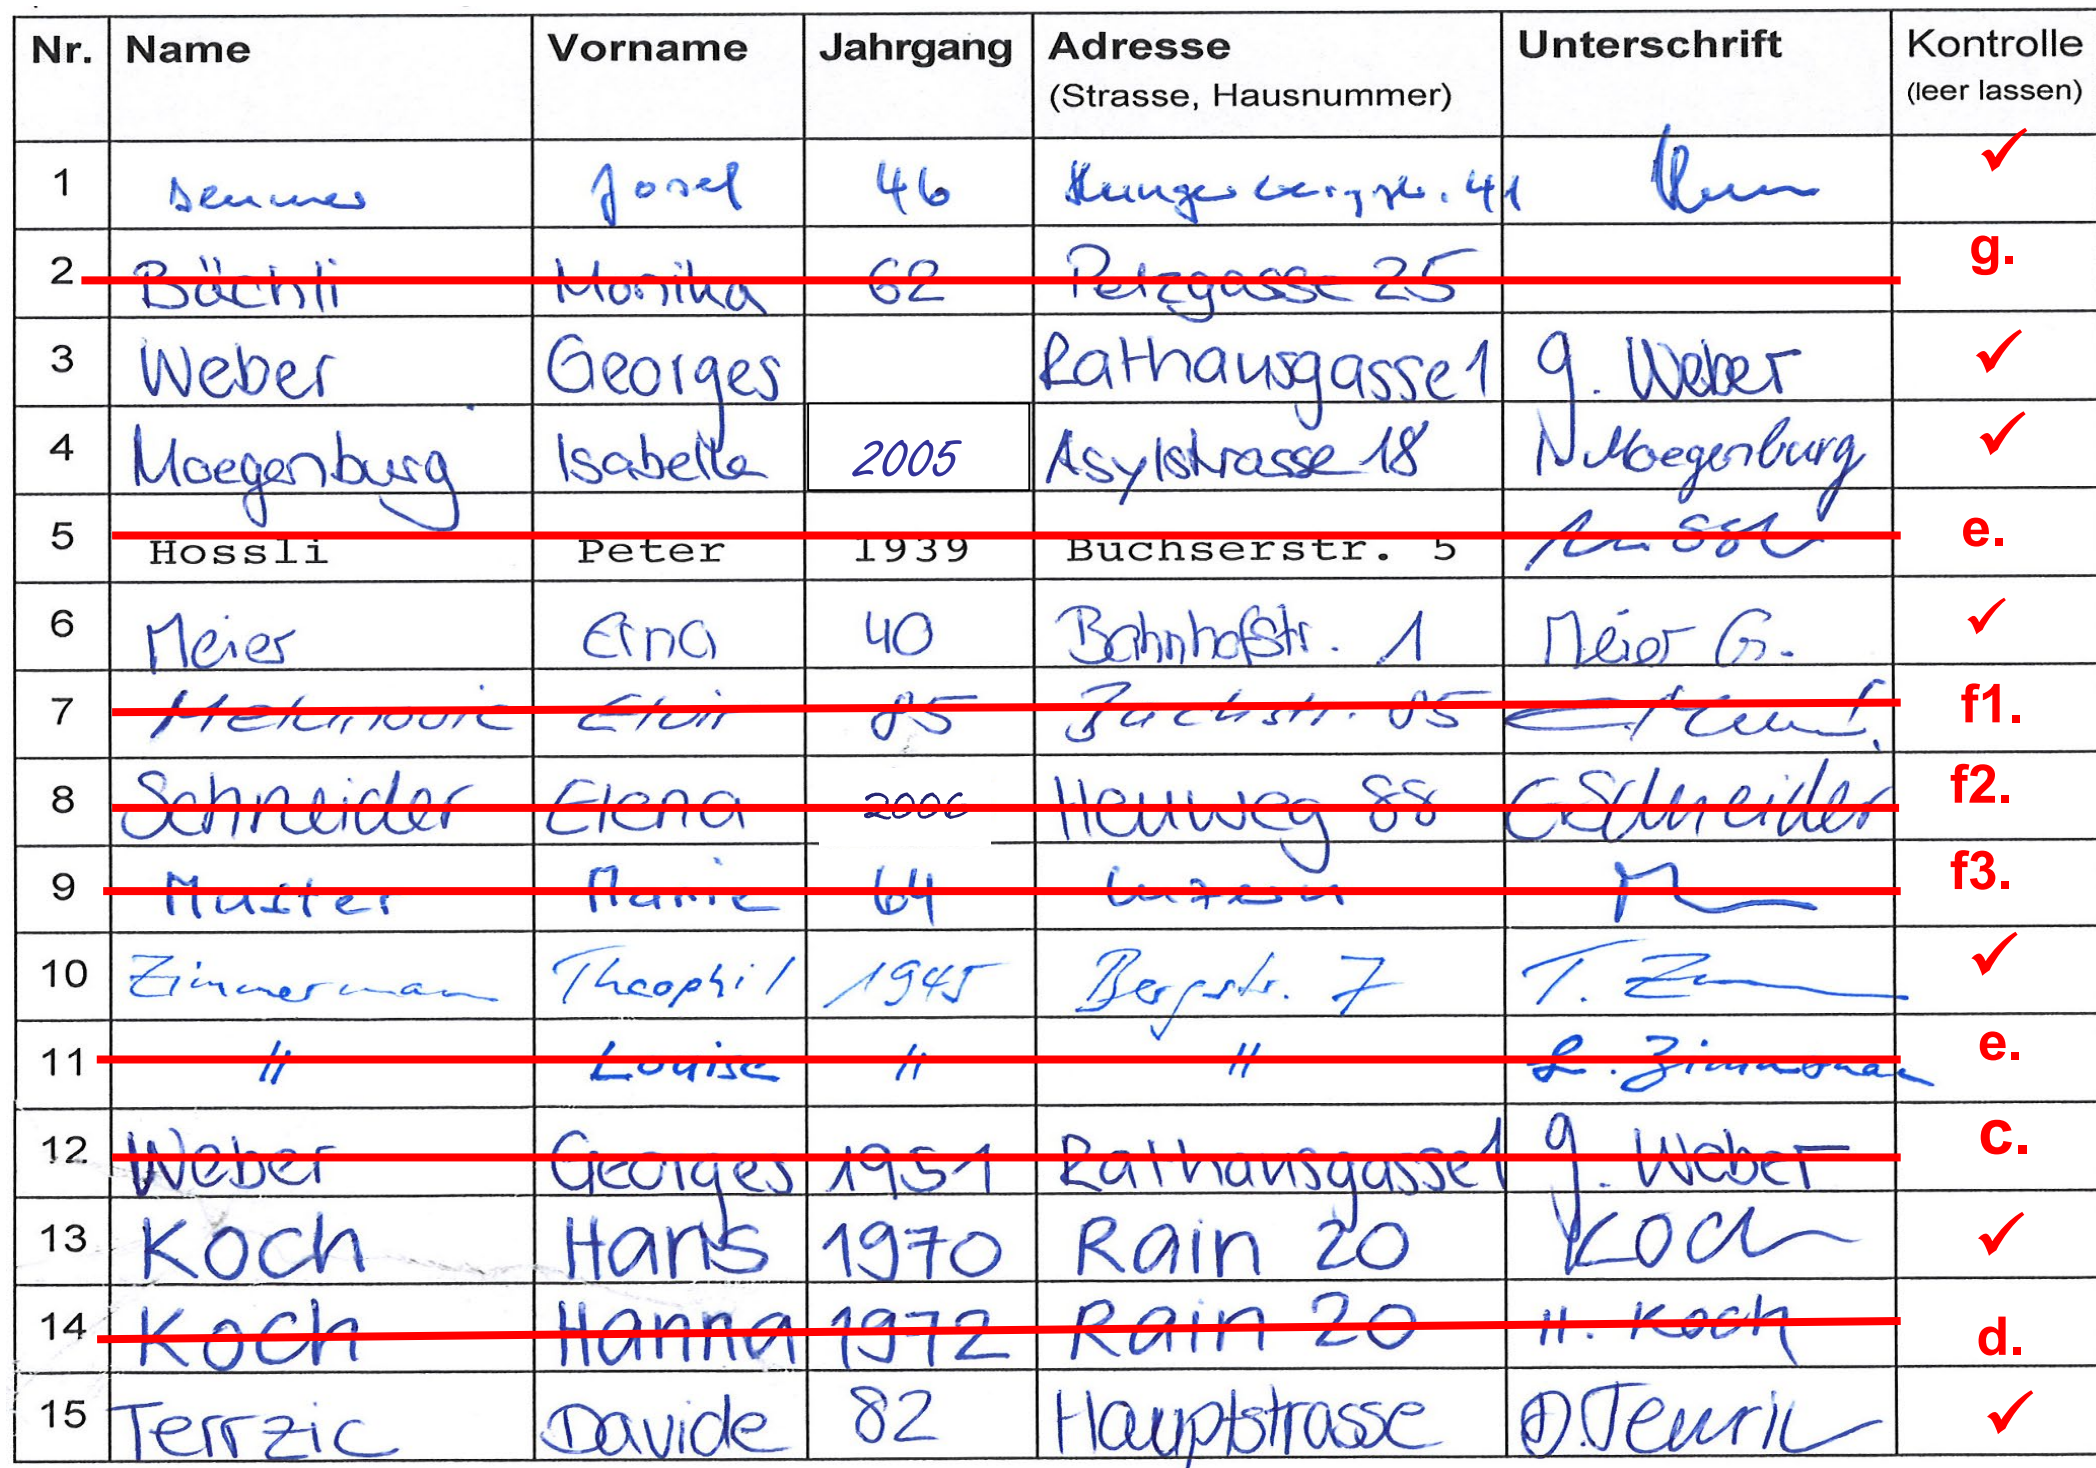 Nr. Name Vorname Jahrgang Adresse Unterschrift Kontrolle
(Strasse, Hausnummer) (leer lassen)
1 Josef 46 41 ✓
2 Bächli Monika 62 Pelzgasse 25 g.
3 Weber Georges Rathausgasse 1 G. Weber ✓
4 Moegenburg Isabella 2005 Asylstrasse 18 Moegenburg ✓
5 Hossli Peter 1939 Buchserstr. 5 e.
6 Meier Erna 40 Bahnhofstr. 1 Meier G. ✓
7 Elvir 85 Bachstr. 85 f1.
8 Schneider Elena 2006 Heuweg 88 E. Schneider f2.
9 Muster Marie 64 Luzern f3.
10 Zimmermann Theophil 1945 Bergstr. 7 T. ✓
11 " Louise " " L. Zimmermann e.
12 Weber Georges 1951 Rathausgasse 1 G. Weber c.
13 Koch Hans 1970 Rain 20 Koch ✓
14 Koch Hanna 1972 Rain 20 H. Koch d.
15 Terrzic Davide 82 Hauptstrasse ✓